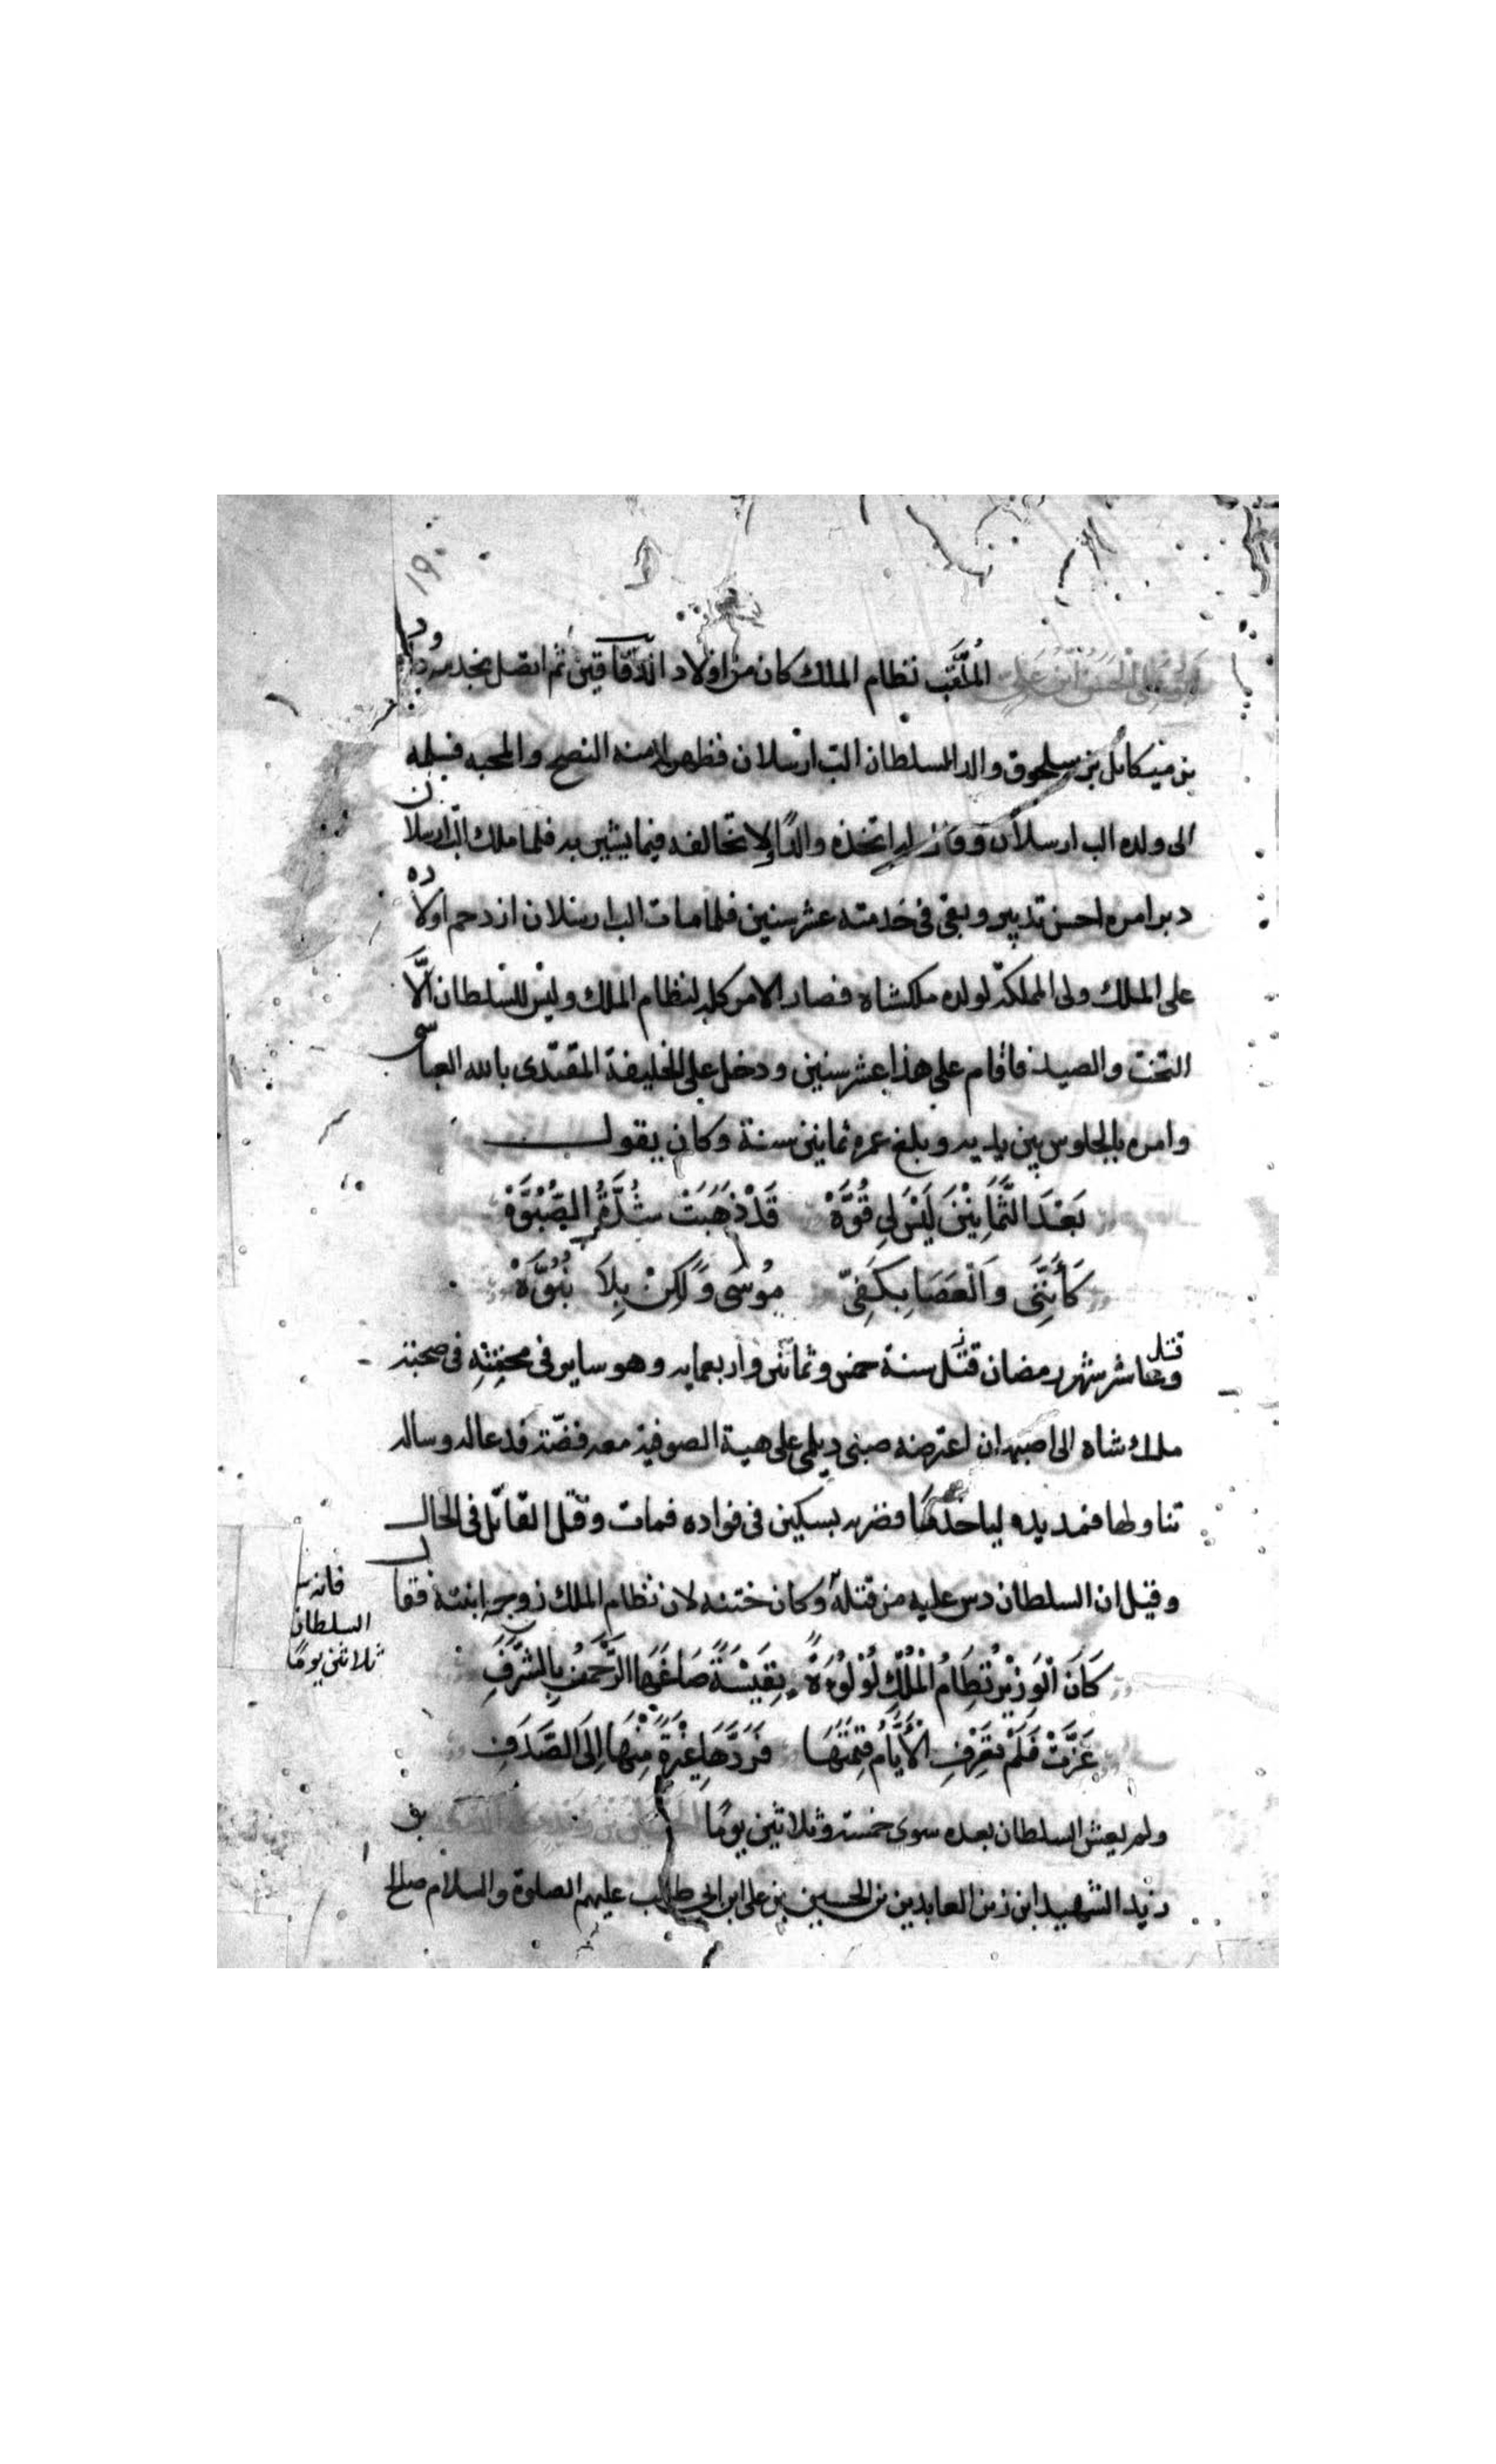 ١٩٠
ابو علي الحسن ابن علي المُلَقَّب نظام الملك كان من اولاد الدَّهَّاقين ثم اتصل بخدمة داود
بن ميكائل بن سلجوق والد السلطان الب ارسلان فظهر له منه النصح والمحبه فسلمه
الى ولده الب ارسلان وقال له اتخذه والدًا ولا تخالفه فيما يشير به فلما ملك الب ارسلان
دبر امره احسن تدبير وبقى فى خدمته عشر سنين فلما مات الب ارسلان ازدحم اولاده
على الملك ولى المملكة لولده ملكشاه فصار الامر كله لنظام الملك وليس للسلطان الَّا
التخت والصيد فاقام على هذا عشر سنين ودخل على الخليفة المقتدى بالله العباسى
وامره بالجلوس بين يديه وبلغ عمره ثمانين سنة وكان يقول
بَعْدَ الثَّمَانِيْنَ لَيْسَ لِى قُوَّهْ قَدْ ذَهَبَتْ شُدَّةُ الصُّبُوَّهْ
كَأَنَّنِى وَالْعَصَا بِكَفِىّ مُوسَى وَلَكِنْ بِلَا نُبُوَّهْ
وعاشر شهر رمضان قتل سنة خمس وثمانين واربعمايه وهو ساير فى محفته فى صحبة
ملك شاه الى اصبهان اعترضه صبى ديلمى على هية الصوفية معه قصّة فدعا له وساله
تناولها فمد يده لياخذها فضربه بسكين فى فواده فمات وقتل القاتل فى الحال
وقيل ان السلطان دس عليه من قتله وكان ختنه لان نظام الملك زوجه ابنته فقال
فانه
السلطان
ثلاثين يومًا
كَانَ الْوَزِيْرُ نِظَامُ الْمُلْكِ لُؤْلُؤَةً نَفِيْسَةً صَاغَهَا الرَّحْمَنُ بِالشَّرَفِ
عَزَّتْ فَلَمْ تَعْرِفِ الْأَيَّامُ قِيْمَتَهَا فَرَدَّهَا غَيْرَةً مِنْهَا إِلَى الصَّدَفِ
ولم يعش السلطان بعده سوى خمسة وثلاثين يومًا
زيد الشهيد ابن زين العابدين بن الحسين بن على ابن ابى طالب عليهم الصلوة والسلام صالح